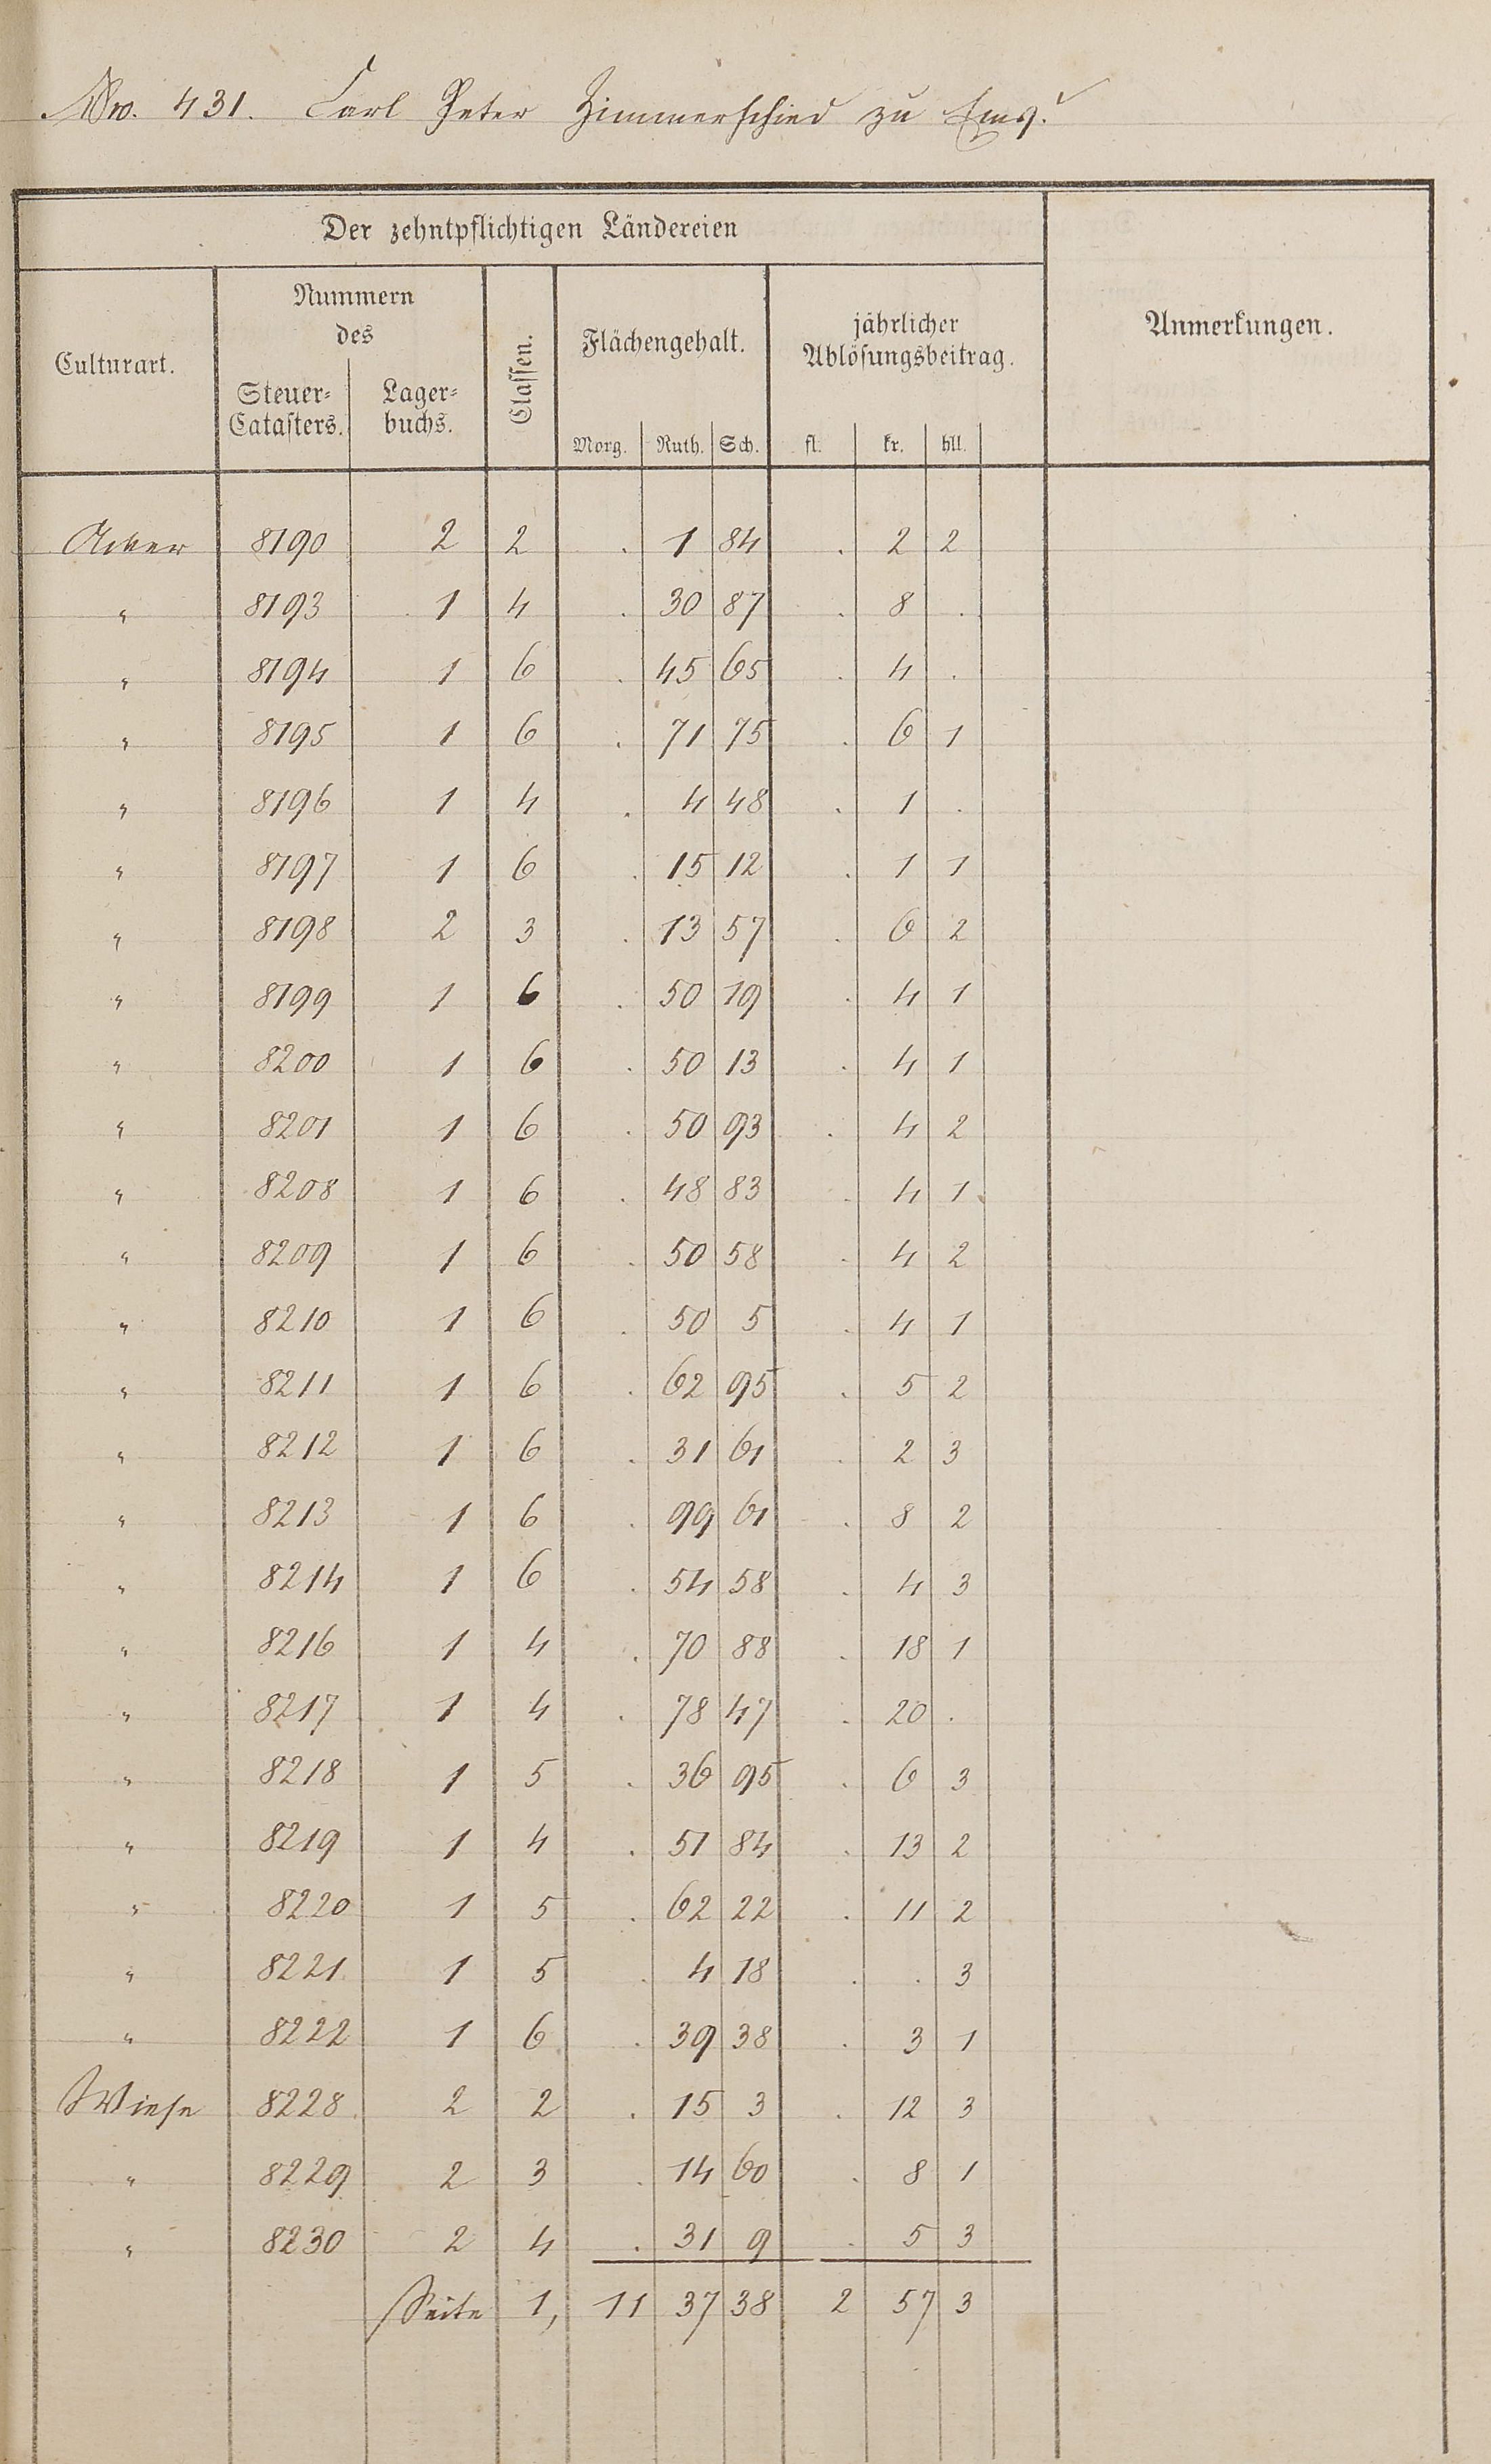 No. 431. Carl Peter Zimmerschied zu Ems.
Der zehntpflichtigen Ländereien
Culturart. Nummern des Steuer-Catasters. Lager-buchs. Classen. Flächengehalt. Morg. Ruth. Sch. jährlicher Ablösungsbeitrag. fl. kr. hll. Anmerkungen.
Acker 8190 2 2 . 1 84 . 2 2
" 8193 1 4 . 30 87 . 8 .
" 8194 1 6 . 45 65 . 4 .
" 8195 1 6 . 71 75 . 6 1
" 8196 1 4 . 4 48 . 1 .
" 8197 1 6 . 15 12 . 1 1
" 8198 2 3 . 13 57 . 6 2
" 8199 1 6 . 50 19 . 4 1
" 8200 1 6 . 50 13 . 4 1
" 8201 1 6 . 50 93 . 4 2
" 8208 1 6 . 48 83 . 4 1
" 8209 1 6 . 50 58 . 4 2
" 8210 1 6 . 50 5 . 4 1
" 8211 1 6 . 62 95 . 5 2
" 8212 1 6 . 31 61 . 2 3
" 8213 1 6 . 99 61 . 8 2
" 8214 1 6 . 54 58 . 4 3
" 8216 1 4 . 70 88 . 18 1
" 8217 1 4 . 78 47 . 20 .
" 8218 1 5 . 36 95 . 6 3
" 8219 1 4 . 51 84 . 13 2
" 8220 1 5 . 62 22 . 11 2
" 8221 1 5 . 4 18 . . 3
" 8222 1 6 . 39 38 . 3 1
Wiese 8228 2 2 . 15 3 . 12 3
" 8229 2 3 . 14 60 . 8 1
" 8230 2 4 . 31 9 . 5 3
Seite 1, 11 37 38 2 57 3